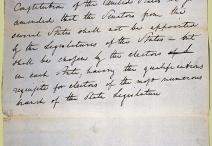 Constitution of the United States be so
amended that the Senators from the
several States shall not be appointed
by the Legislatures of the States – but
shall be chosen by the electors
in each State, having the qualifications
requisite for electors of the most numerous
branch of the State Legislature